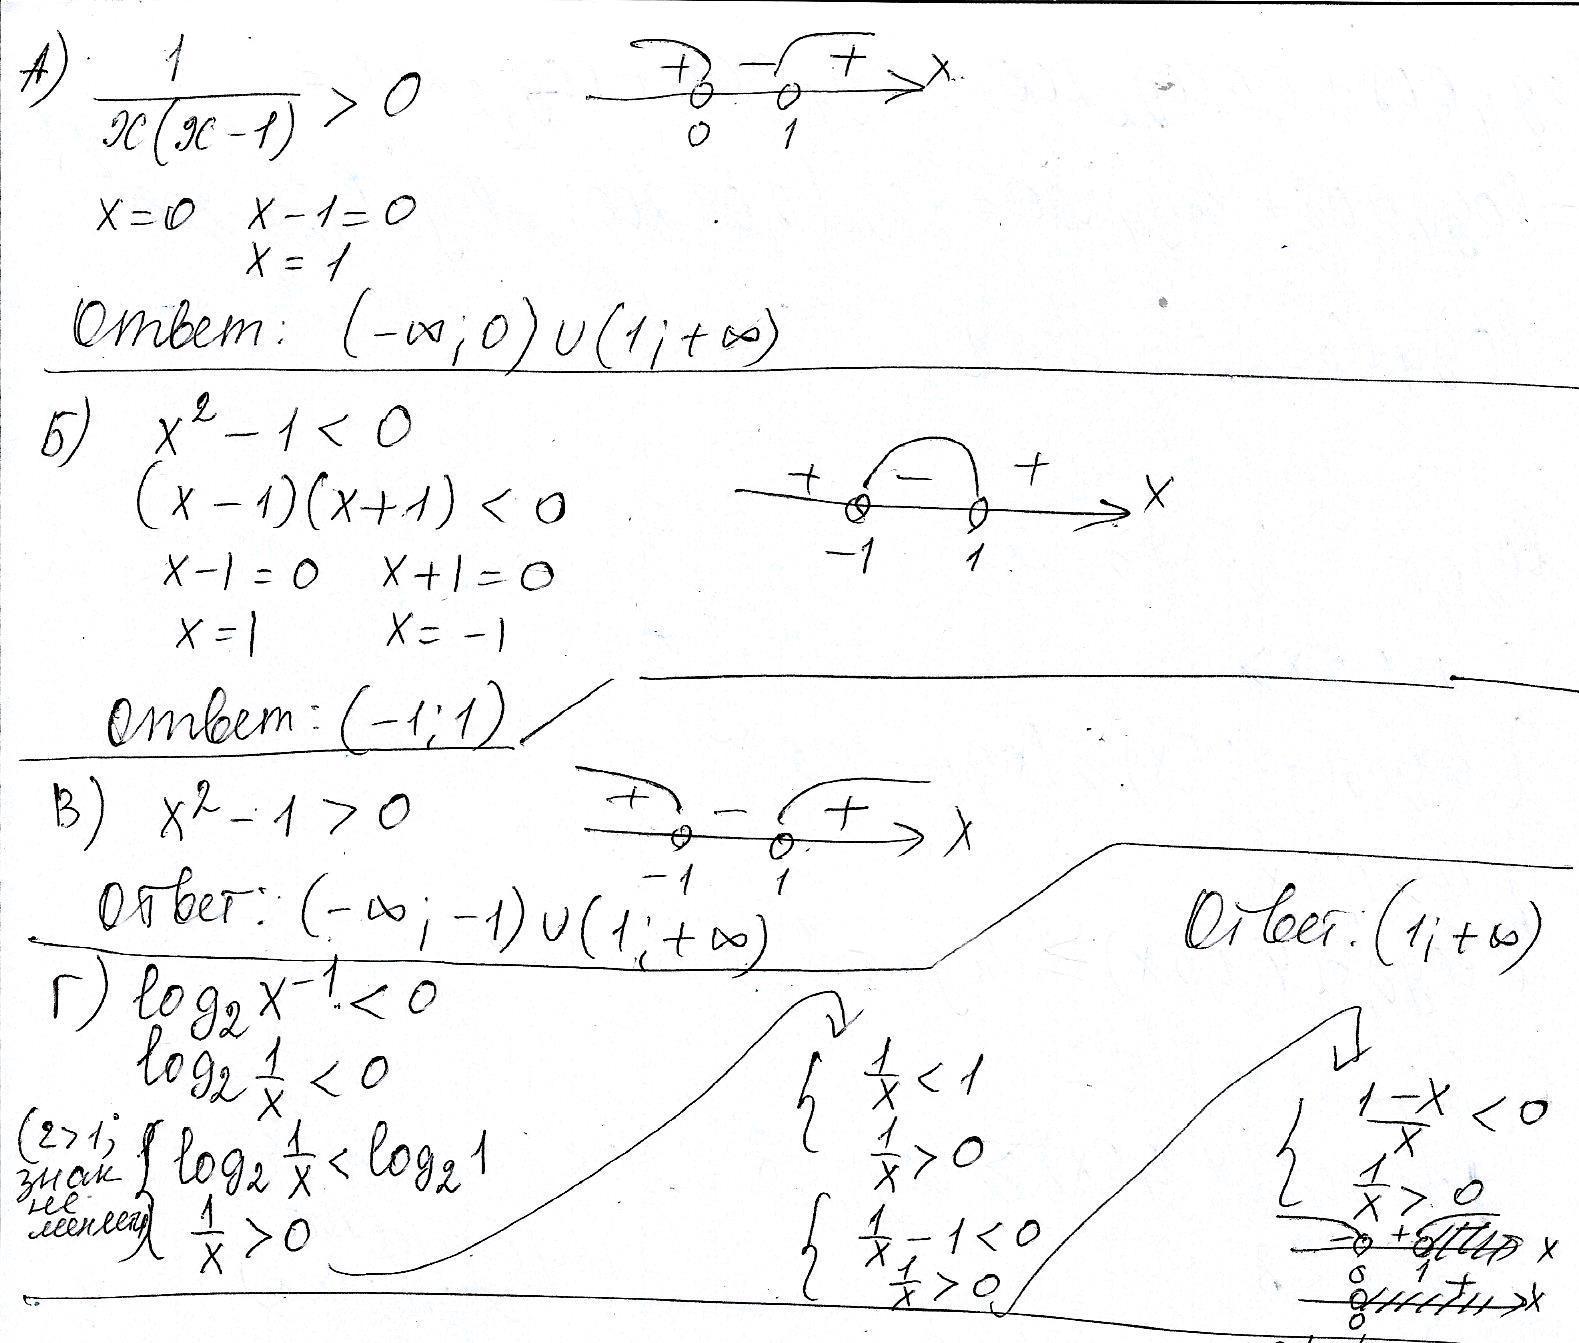 А) 1/(x(x-1)) > 0
+ - + x
0 1
x=0 x-1=0
x=1
Ответ: (-∞; 0) ∪ (1; +∞)
Б) x² - 1 < 0
(x-1)(x+1) < 0
+ - + x
-1 1
x-1=0 x+1=0
x=1 x=-1
Ответ: (-1; 1)
В) x² - 1 > 0
+ - + x
-1 1
Ответ: (-∞; -1) ∪ (1; +∞)
Г) log₂ x⁻¹ < 0
log₂ 1/x < 0
(2>1; знак не меняем)
{ log₂ 1/x < log₂ 1
1/x > 0
{ 1/x < 1
1/x > 0
{ 1/x - 1 < 0
1/x > 0
{ (1-x)/x < 0
1/x > 0
- + - x
0 1
+ x
0
Ответ: (1; +∞)